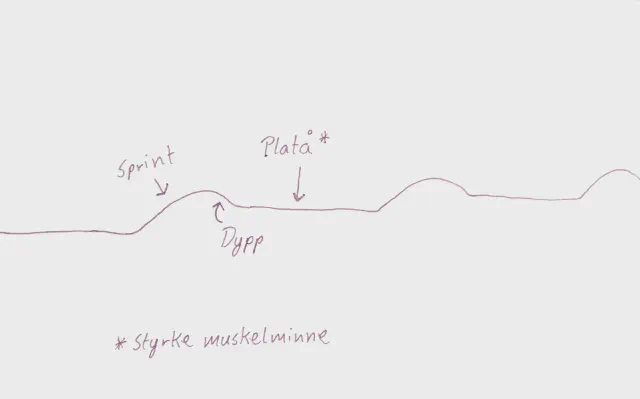 Sprint
Platå*
Dypp
* Styrke muskelminne